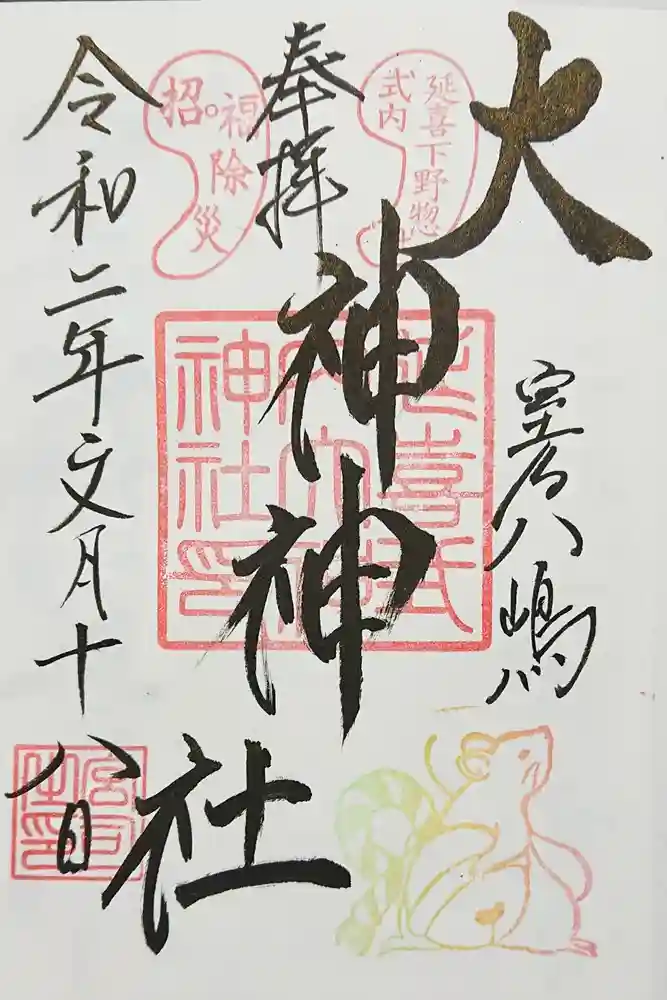 延喜下野惣
式内
大神神社
室乃八嶋
奉拝
招福除災
延喜式
内大神
神社印
令和二年文月十八日
宮司
之印